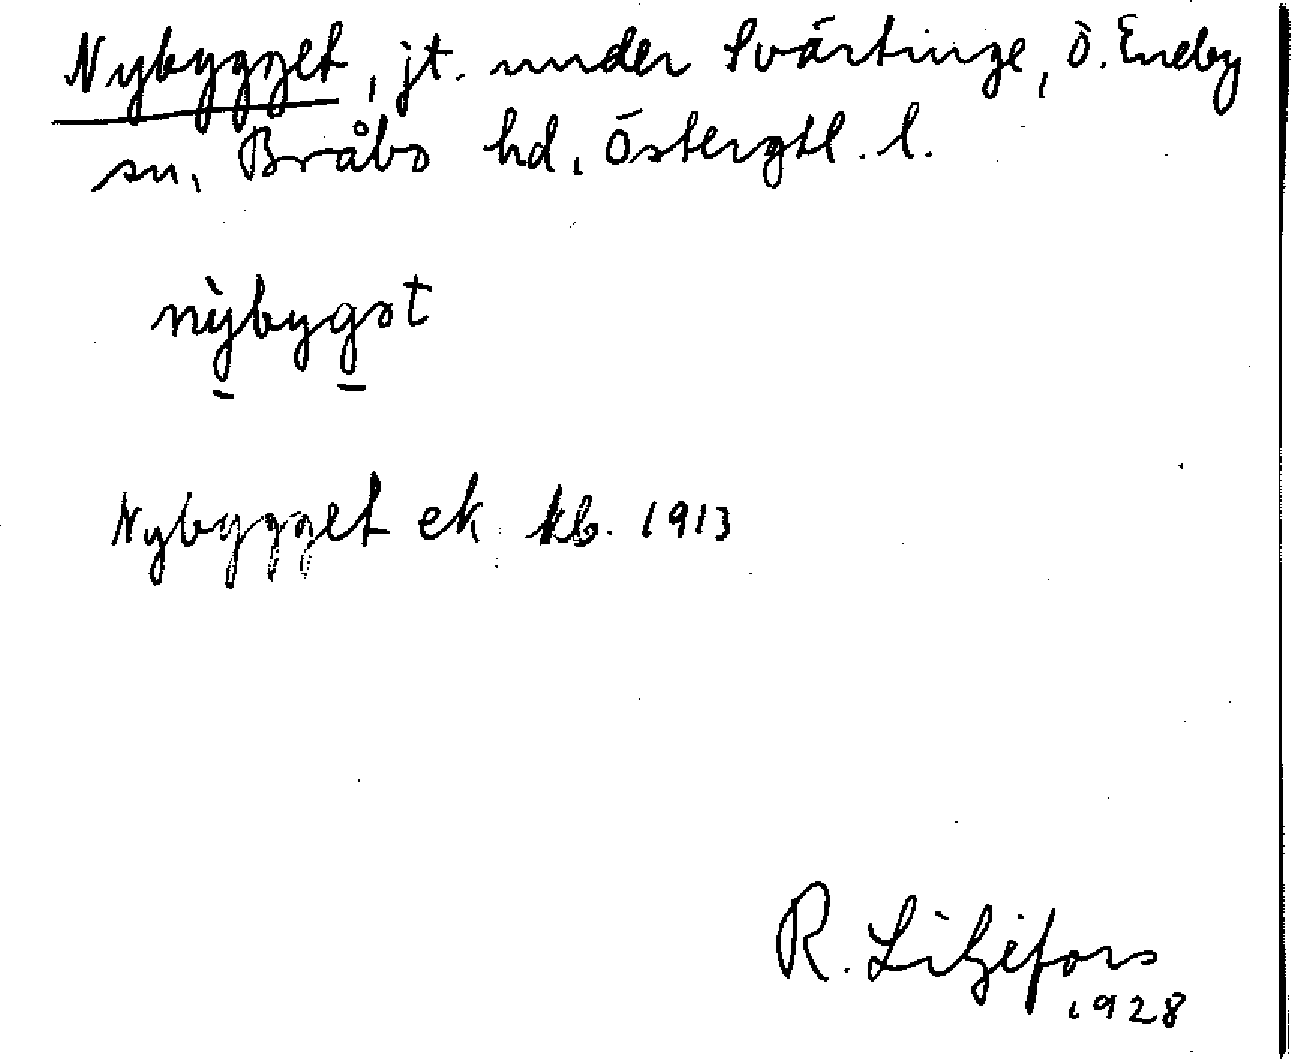 Nybygget, jt. under Svärtinge, Ö. Eneby
sn, Bråbo hd, Östergtl. l.
nỳbygət
Nybygget ek. kb. 1913
R. Liljefors
1928